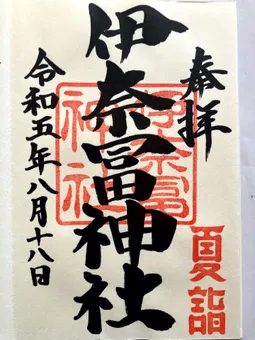 奉拝
夏詣
伊奈冨神社
伊奈冨神社
令和五年八月十八日